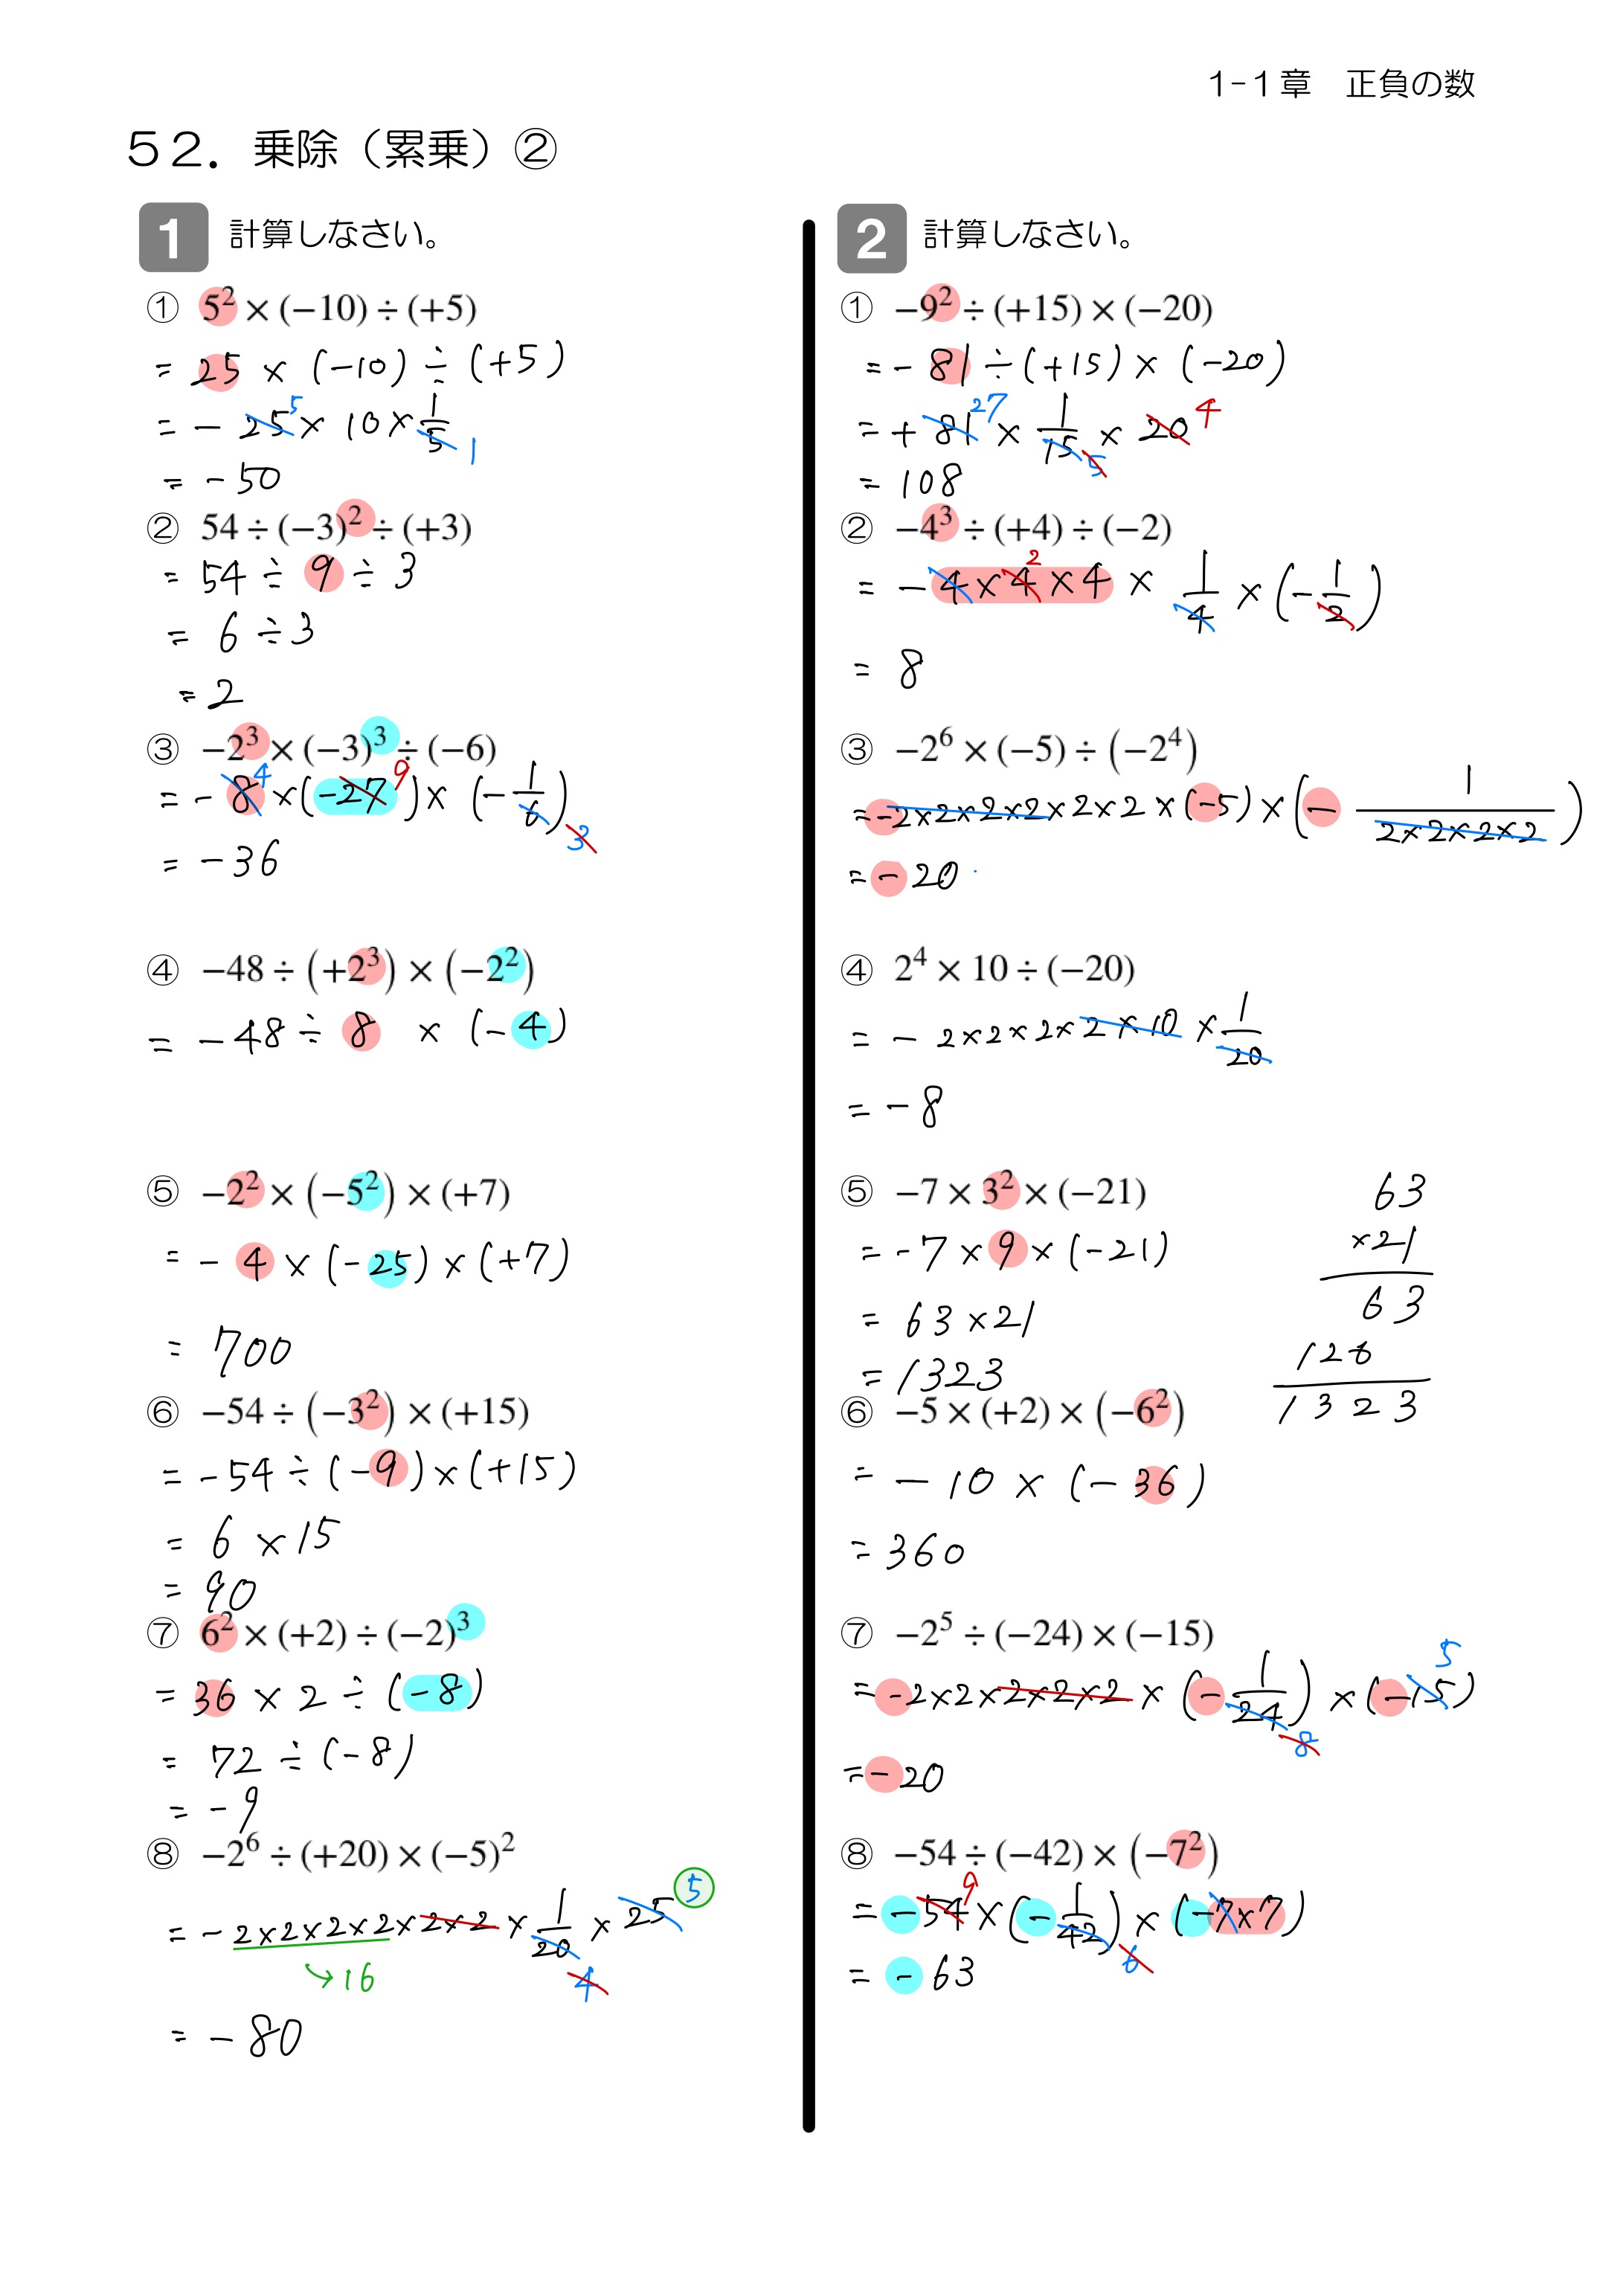 1-1章　正負の数
５２．乗除（累乗）②
1 計算しなさい。
① 5² × (−10) ÷ (+5)
= 25 × (−10) ÷ (+5)
= − 25 5 × 10 × 1/5 1
= −50
② 54 ÷ (−3)² ÷ (+3)
= 54 ÷ 9 ÷ 3
= 6 ÷ 3
= 2
③ −2³ × (−3)³ ÷ (−6)
= − 8 4 × (−27 9) × (−1/6) 3
= −36
④ −48 ÷ (+2³) × (−2²)
= −48 ÷ 8 × (−4)
⑤ −2² × (−5²) × (+7)
= − 4 × (−25) × (+7)
= 700
⑥ −54 ÷ (−3²) × (+15)
= −54 ÷ (−9) × (+15)
= 6 × 15
= 90
⑦ 6² × (+2) ÷ (−2)³
= 36 × 2 ÷ (−8)
= 72 ÷ (−8)
= −9
⑧ −2⁶ ÷ (+20) × (−5)²
= − 2×2×2×2×2×2 × 1/20 4 × 25 5
→16
= −80
2 計算しなさい。
① −9² ÷ (+15) × (−20)
= − 81 ÷ (+15) × (−20)
= + 81 27 × 1/15 5 × 20 4
= 108
② −4³ ÷ (+4) ÷ (−2)
= − 4 × 4 2 × 4 × 1/4 × (−1/2)
= 8
③ −2⁶ × (−5) ÷ (−2⁴)
= −2×2×2×2×2×2 × (−5) × (− 1/2×2×2×2)
= −20
④ 2⁴ × 10 ÷ (−20)
= − 2×2×2×2×10 × 1/20
= −8
⑤ −7 × 3² × (−21)
= −7 × 9 × (−21)
= 63 × 21
= 1323
63
×21
63
126
1323
⑥ −5 × (+2) × (−6²)
= −10 × (−36)
= 360
⑦ −2⁵ ÷ (−24) × (−15)
= −2×2×2×2×2 × (−1/24) 8 × (−15) 5
= −20
⑧ −54 ÷ (−42) × (−7²)
= −54 9 × (−1/42) 6 × (−7×7)
= −63